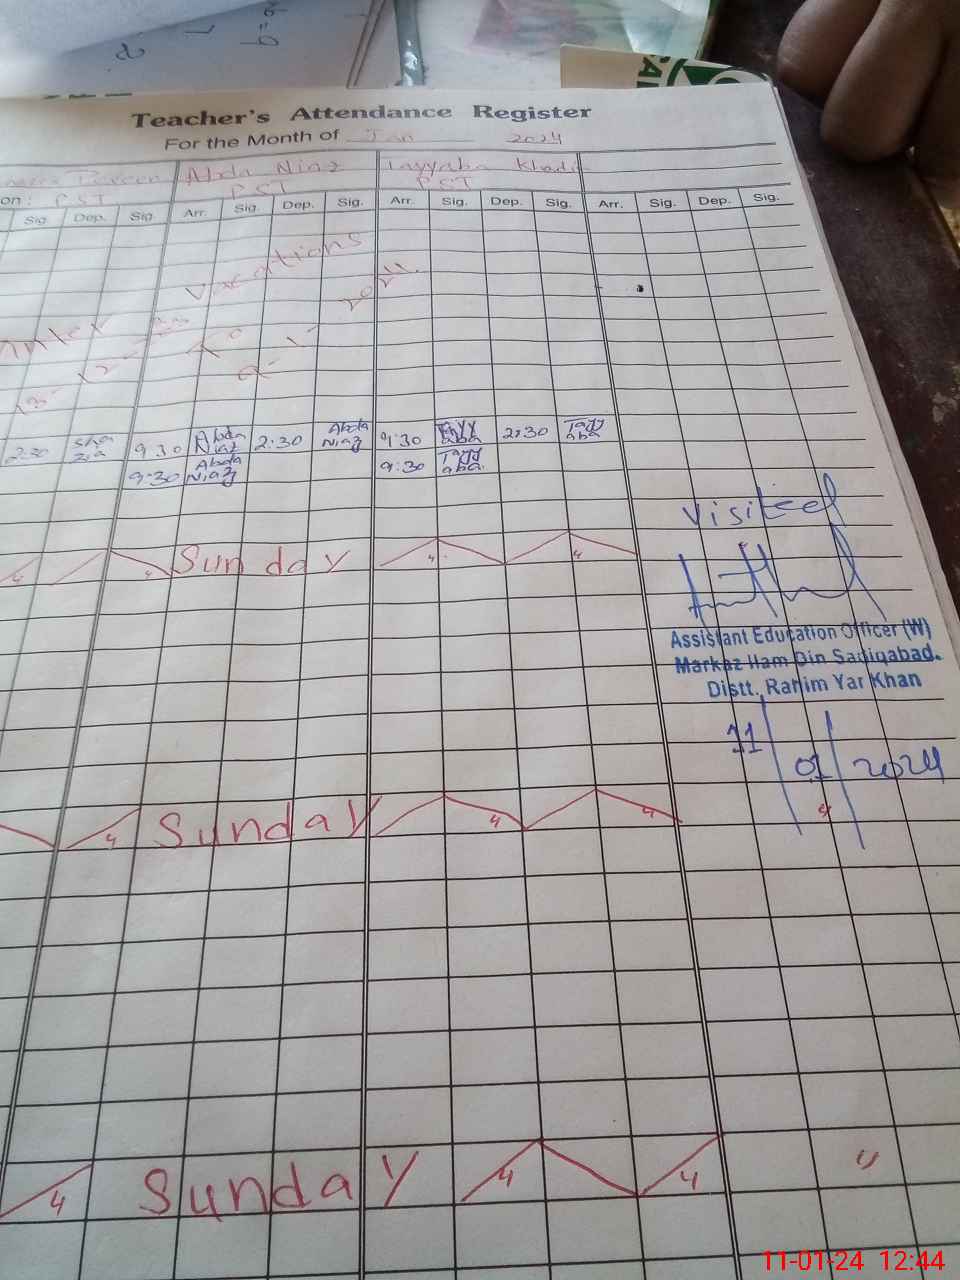 Teacher's Attendance Register
For the Month of Jan 2024
Abda Niaz Tayyaba
on: PST PST PST
Sig. Dep. Sig. Arr. Sig. Dep. Sig. Arr. Sig. Dep. Sig. Arr. Sig. Dep. Sig.
vacations
2:30 Sha zia 9:30 Abda Niaz 2:30 Abda Niaz 9:30 Tayy aba 2:30 Tayy aba
9:30 Abda Niaz 9:30 Tayy aba
Visited
Sunday
Assistant Education Officer (W)
Markaz Ilam Din Sadiqabad.
Distt. Rahim Yar Khan
11 01 2024
Sunday
Sunday
11-01-24 12:44